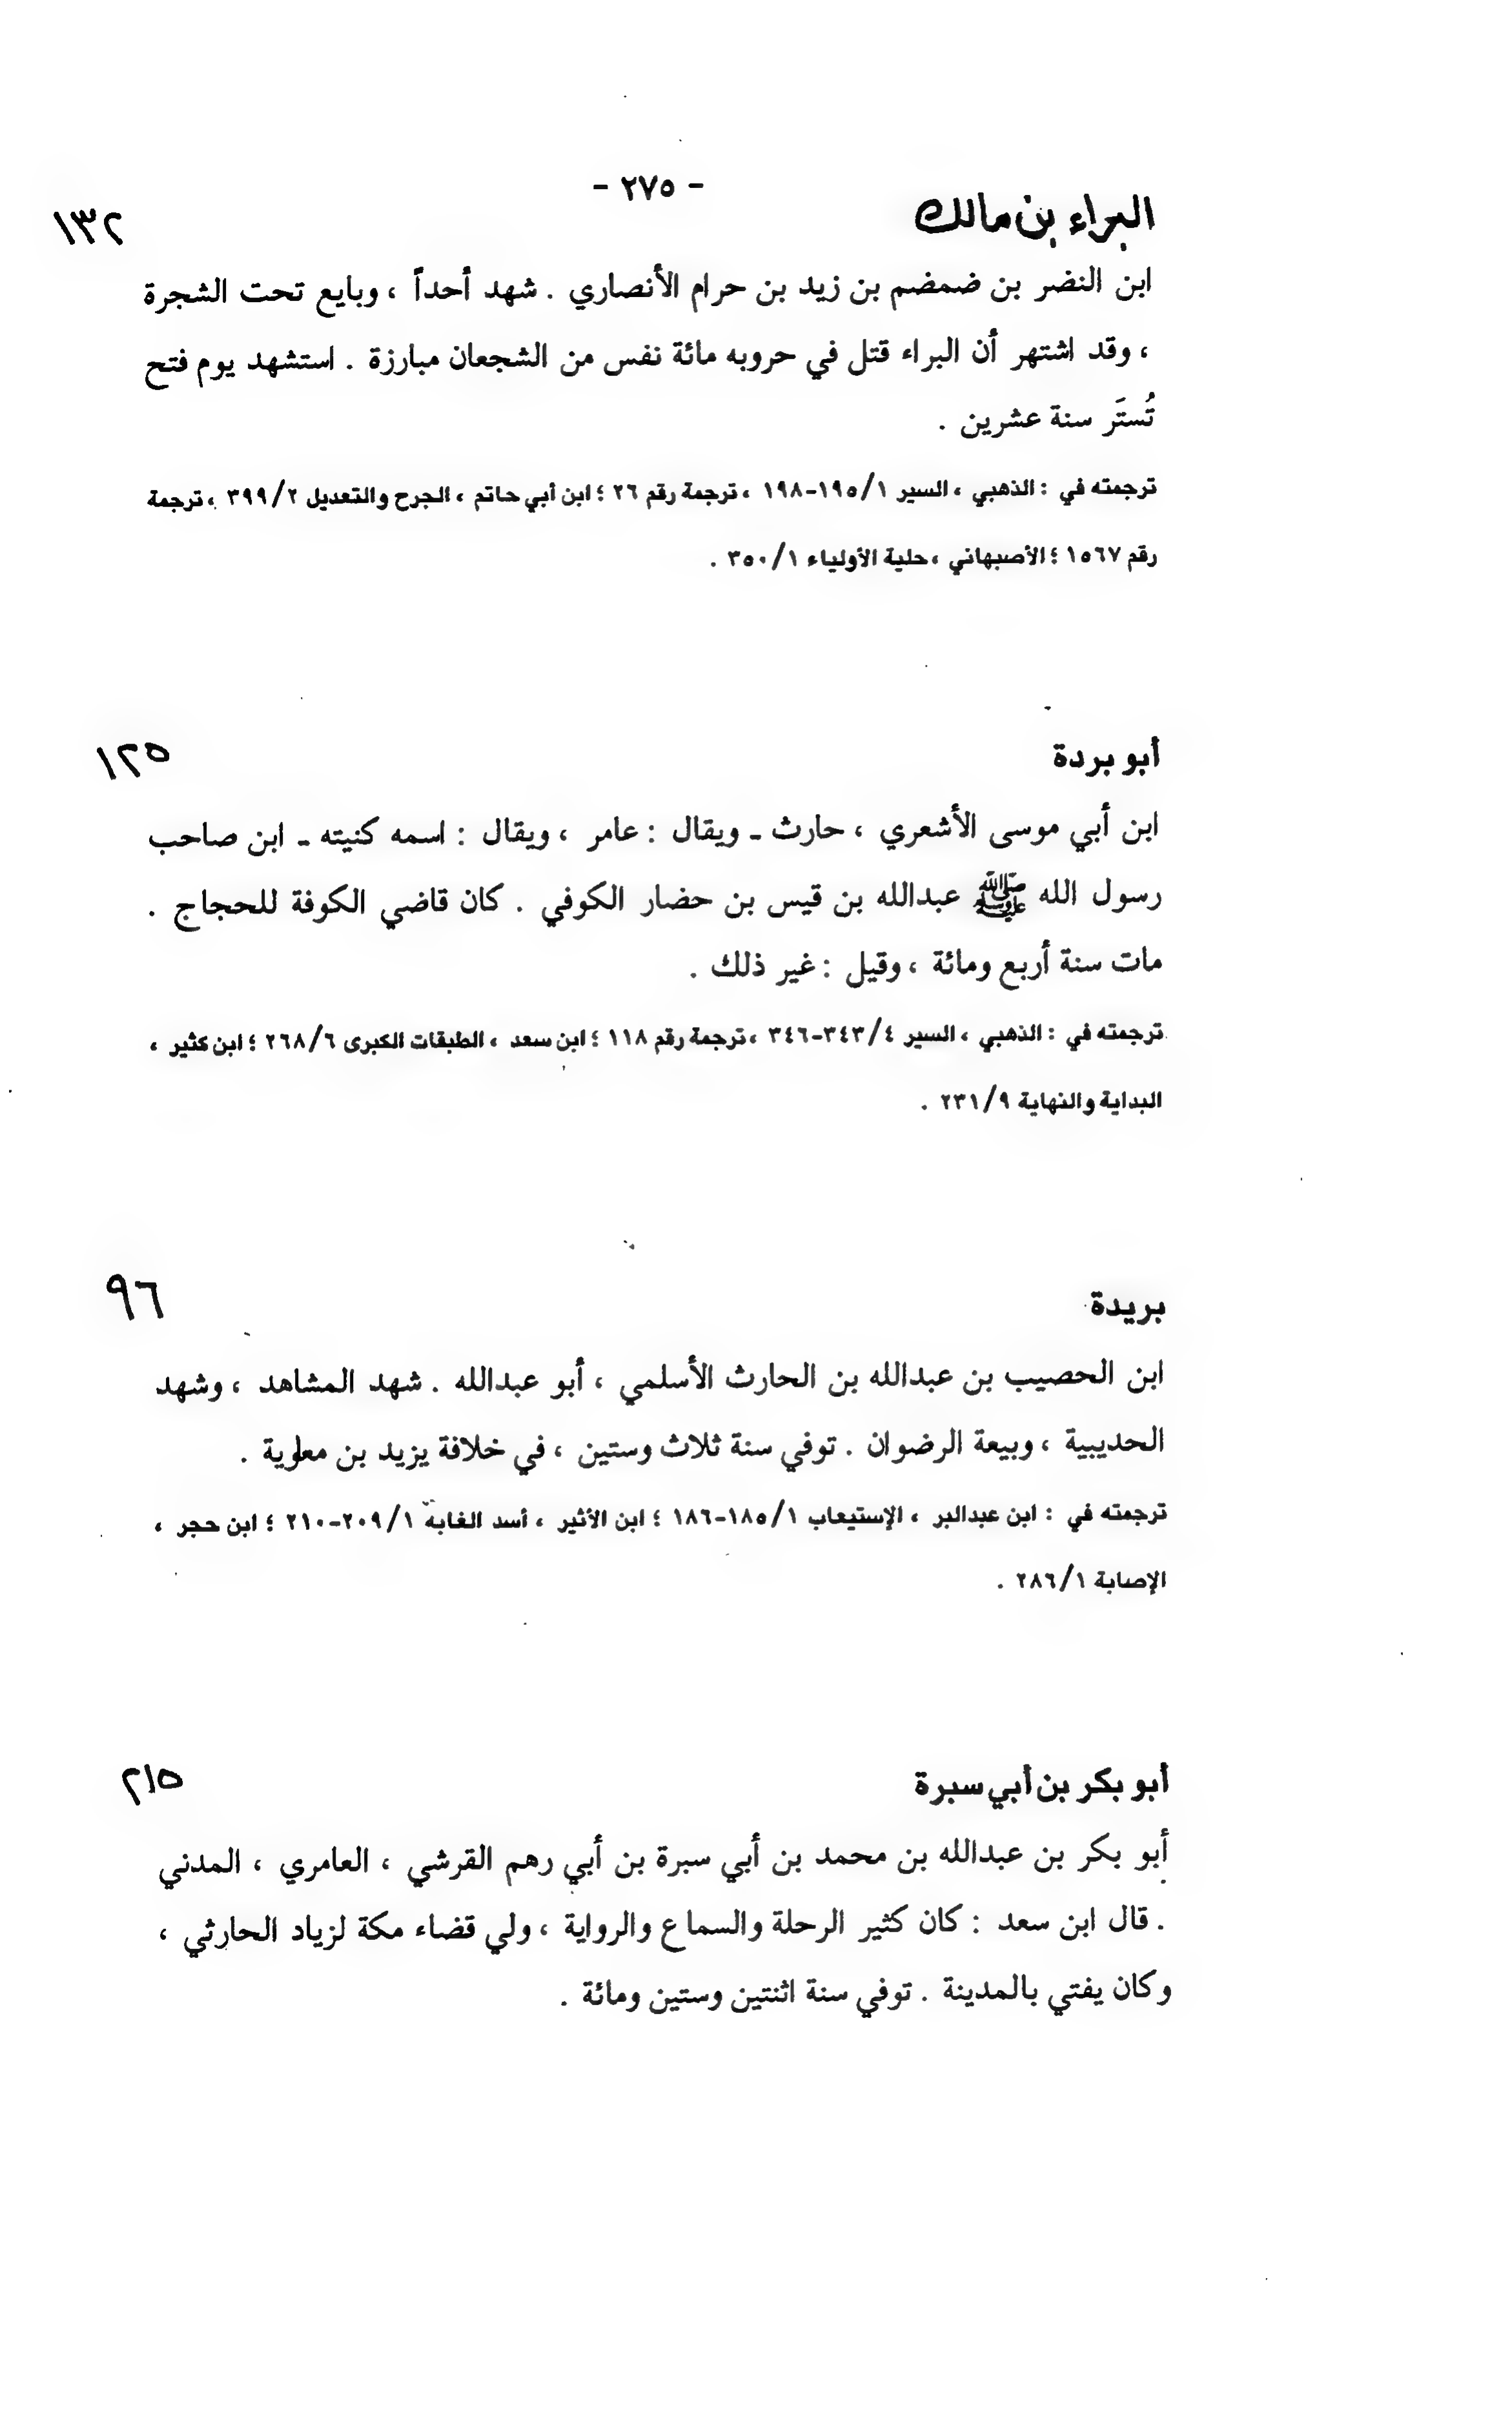 - ٢٧٥ -
البراء بن مالك ١٣٢
ابن النضر بن ضمضم بن زيد بن حرام الأنصاري . شهد أحداً ، وبايع تحت الشجرة
، وقد اشتهر أن البراء قتل في حروبه مائة نفس من الشجعان مبارزة . استشهد يوم فتح
تُستَر سنة عشرين .
ترجمته في : الذهبي ، السير ١/ ١٩٥-١٩٨ ، ترجمة رقم ٢٦ ؛ ابن أبي حاتم ، الجرح والتعديل ٢/ ٣٩٩ ، ترجمة
رقم ١٥٦٧ ؛ الأصبهاني ، حلية الأولياء ١/ ٣٥٠ .
أبو بردة ١٢٥
ابن أبي موسى الأشعري ، حارث ـ ويقال : عامر ، ويقال : اسمه كنيته ـ ابن صاحب
رسول الله ﷺ عبدالله بن قيس بن حضار الكوفي . كان قاضي الكوفة للحجاج .
مات سنة أربع ومائة ، وقيل : غير ذلك .
ترجمته في : الذهبي ، السير ٤/ ٣٤٣-٣٤٦ ، ترجمة رقم ١١٨ ؛ ابن سعد ، الطبقات الكبرى ٦/ ٢٦٨ ؛ ابن كثير ،
البداية والنهاية ٩/ ٢٣١ .
بريدة ٩٦
ابن الحصيب بن عبدالله بن الحارث الأسلمي ، أبو عبدالله . شهد المشاهد ، وشهد
الحديبية ، وبيعة الرضوان . توفي سنة ثلاث وستين ، في خلافة يزيد بن معاوية .
ترجمته في : ابن عبدالبر ، الإستيعاب ١/ ١٨٥-١٨٦ ؛ ابن الأثير ، أسد الغابة ١/ ٢٠٩-٢١٠ ؛ ابن حجر ،
الإصابة ١/ ٢٨٦ .
أبو بكر بن أبي سبرة ٢١٥
أبو بكر بن عبدالله بن محمد بن أبي سبرة بن أبي رهم القرشي ، العامري ، المدني
. قال ابن سعد : كان كثير الرحلة والسماع والرواية ، ولي قضاء مكة لزياد الحارثي ،
وكان يفتي بالمدينة . توفي سنة اثنتين وستين ومائة .